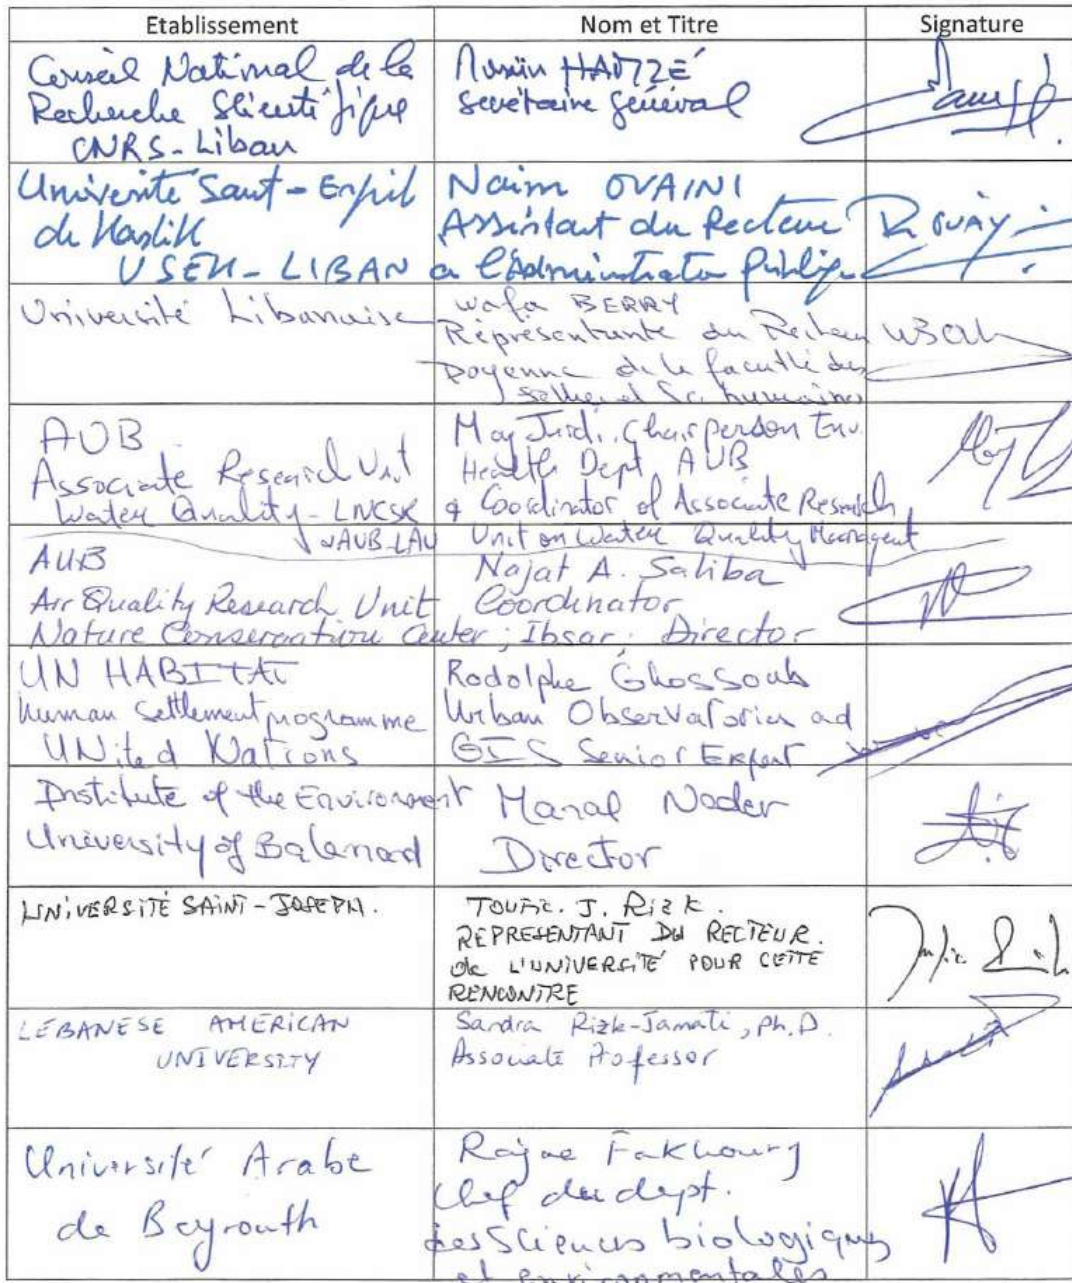 Etablissement Nom et Titre Signature
Conseil National de la
Recherche Scientifique
CNRS-Liban
HAMZÉ
Secrétaire Général
Université Saint-Esprit
de Kaslik
USEK-LIBAN
Naim OUAINI
Assistant du Recteur
a l'Administration Publique
Université Libanaise
Wafa BERRY
Représentante du Recteur
Doyenne de la faculté des
et Sc. humaines
AUB
Associate Research Unit
Water Quality - LNCSR
& AUB-LAU
May Jurdi, Chairperson Env.
Health Dept AUB
& Coordinator of Associate Research
Unit on Water Quality Management
AUB
Air Quality Research Unit
Nature Conservation Center, Ibsar,
Najat A. Saliba
Coordinator
Director
UN HABITAT
human settlement programme
UNited Nations
Rodolphe Ghossoub
Urban Observatories ad
GIS Senior Expert
Institute of the Environment
University of Balamand
Manal Nader
Director
UNIVERSITÉ SAINT-JOSEPH.
TOUFIC. J. RIZK.
REPRESENTANT DU RECTEUR.
de L'UNIVERSITÉ POUR CETTE
RENCONTRE
LEBANESE AMERICAN
UNIVERSITY
Sandra Rizk-Jamati, Ph.D.
Associate Professor
Université Arabe
de Beyrouth
Fakhoury
Chef du dept.
des Sciences biologiques
et environnementales